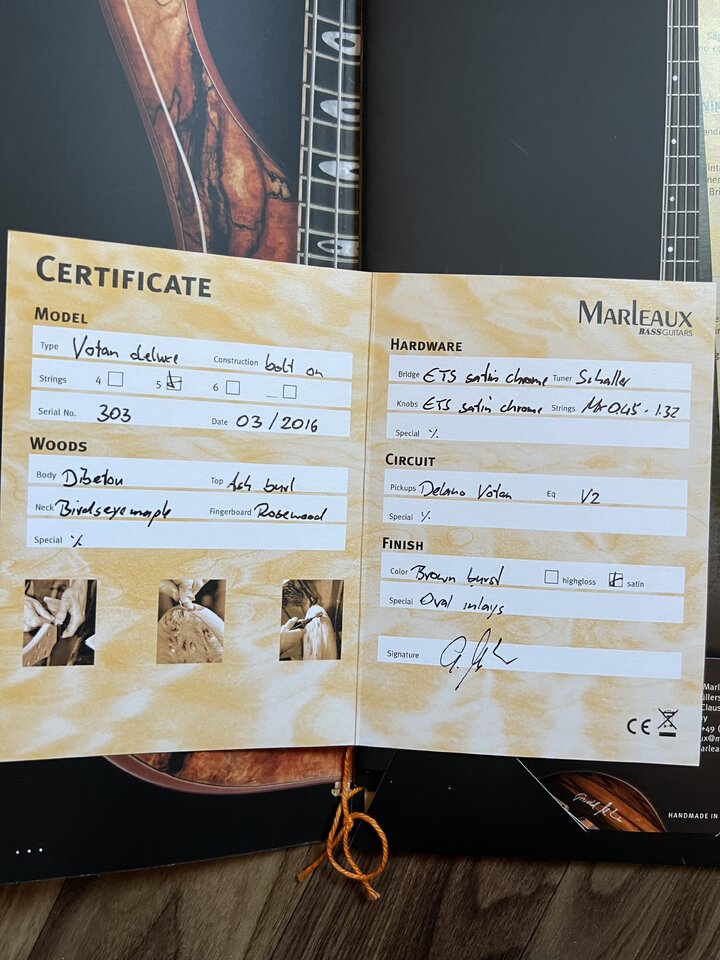 CERTIFICATE
MODEL
Type Votan deluxe Construction bolt on
Strings 4 5 6 __
Serial No. 303 Date 03/2016
WOODS
Body Dibetou Top Ash burl
Neck Birdseyemaple Fingerboard Rosewood
Special ⁒
MARLEAUX
BASSGUITARS
HARDWARE
Bridge ETS satin chrome Tuner Schaller
Knobs ETS satin chrome Strings Mx 0.45 - 1.32
Special ⁒
CIRCUIT
Pickups Delano Votan Eq V2
Special ⁒
FINISH
Color Brown burst highgloss satin
Special Oval inlays
Signature
CE
HANDMADE IN